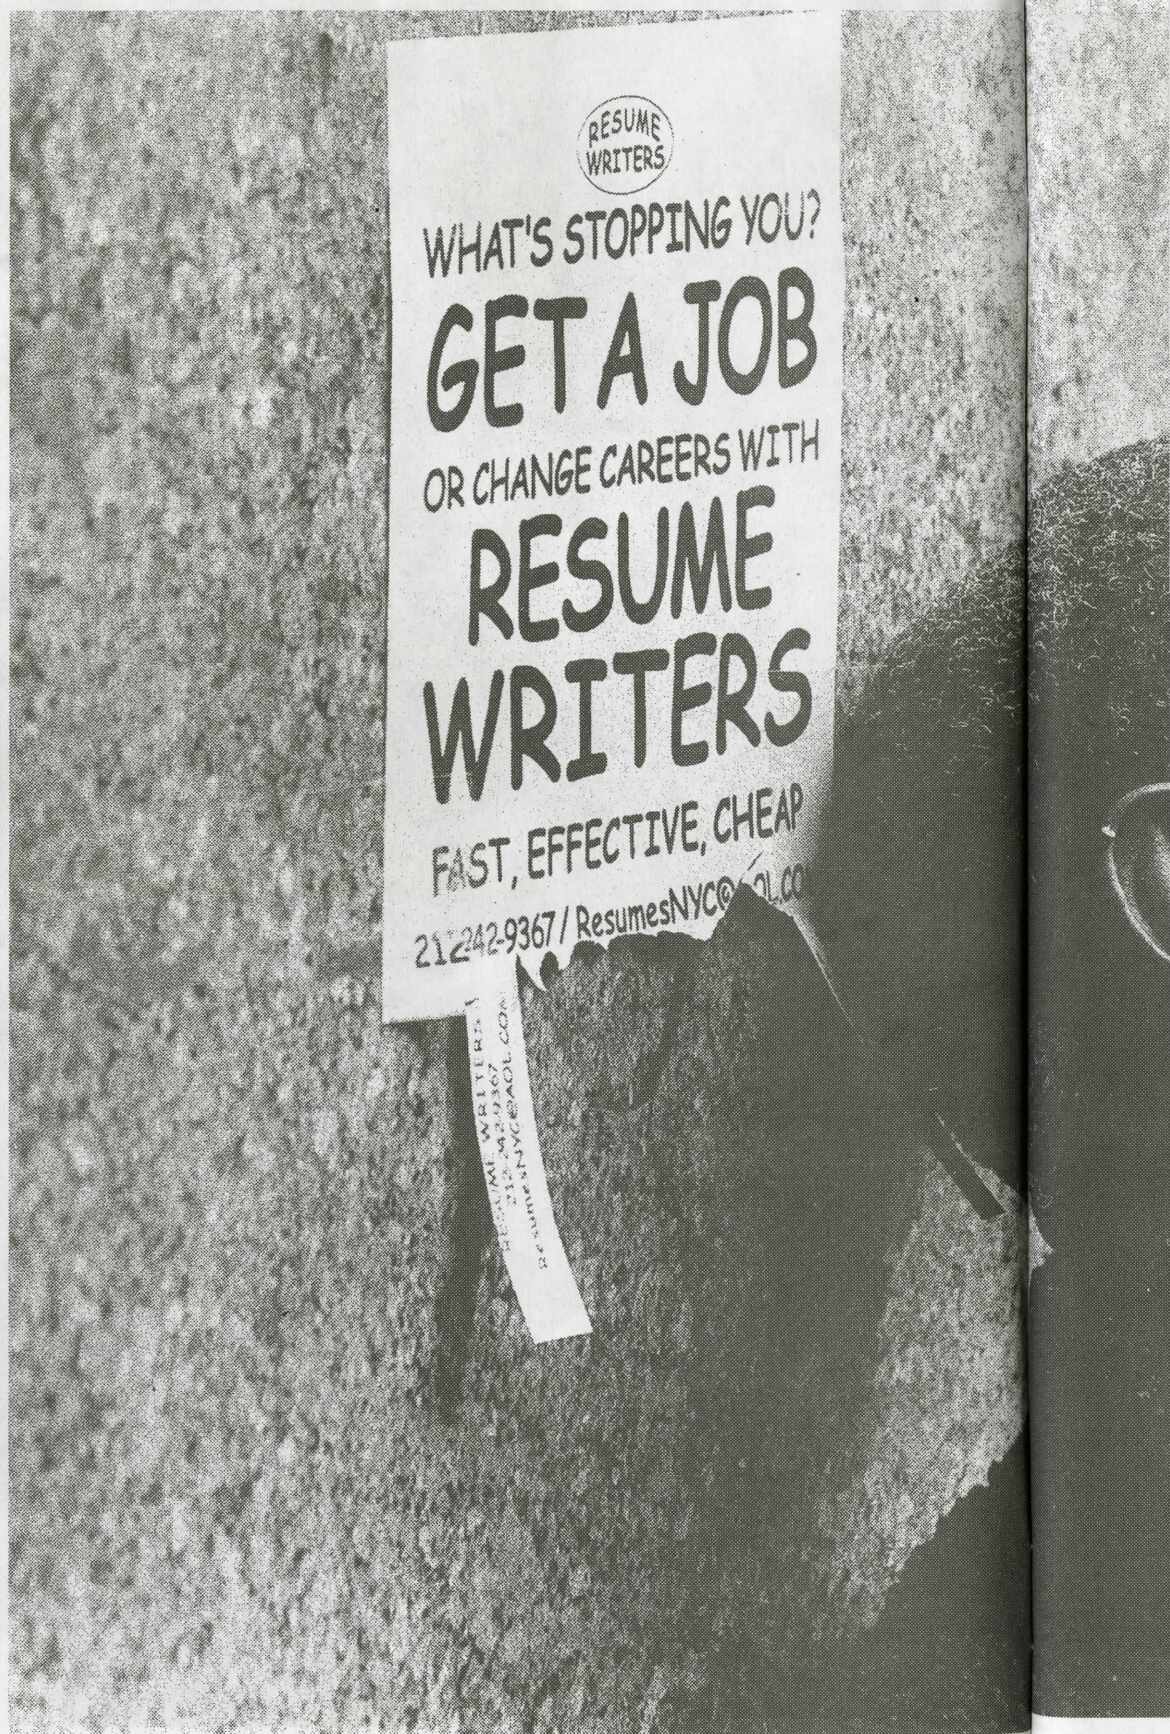 RESUME
WRITERS
WHAT'S STOPPING YOU?
GET A JOB
OR CHANGE CAREERS WITH
RESUME
WRITERS
FAST, EFFECTIVE, CHEAP
212 242-9367 / ResumesNYC@AOL.CO
RESUME WRITERS
212-242-9367
ResumesNYC@AOL.COM